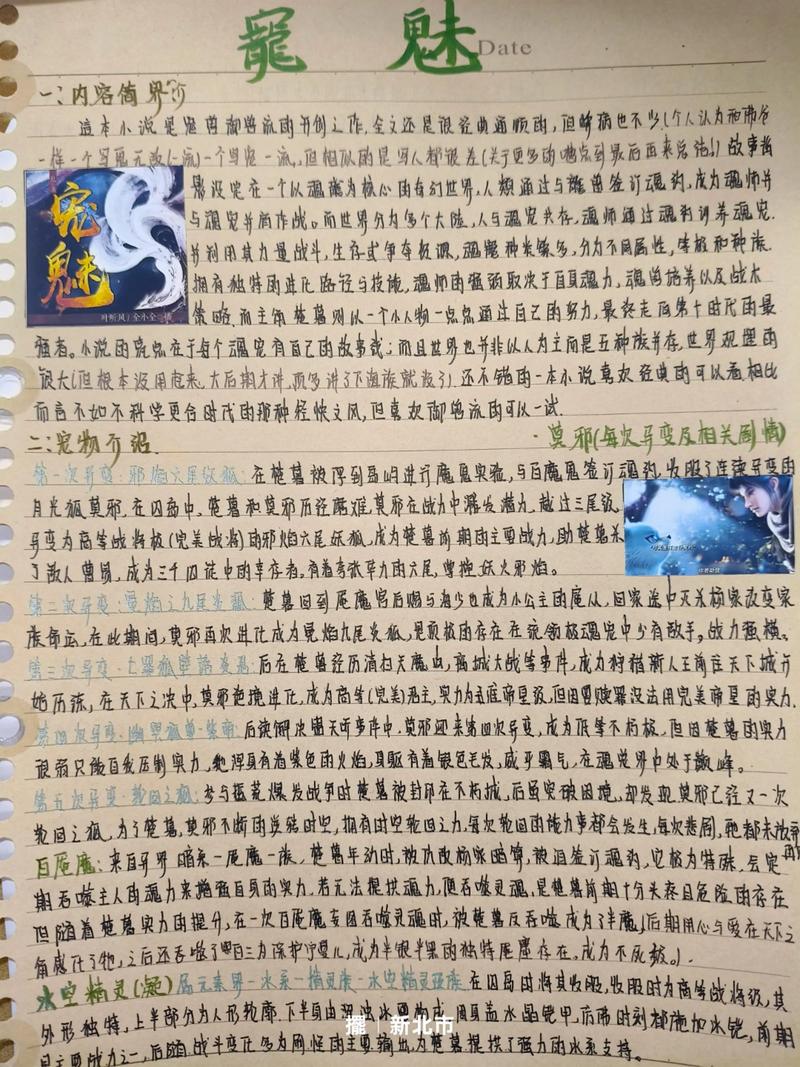 寵 魅
Date
一:内容简界介
这本小说是宠兽御兽流的开创之作,全文还是很经典通顺的,但缺病也不少(个人认为和
一样一个写鬼无敌(一流)一个写宠一流,但相似的是写人都很差(关于更多的槽点到最后再来总结!)故事背
景设定在一个以魂宠为核心的奇幻世界,人类通过与魂兽签订魂约,成为魂师并
与魂宠并肩作战。而世界分为多个大陆,人与魂宠共存,魂师通过魂约培养魂宠.
并利用其力量战斗,生存或争夺极源,魂宠种类繁多,分为不同属性,等级和种族.
拥有独特的进化路径与技能,魂师的强弱取决于自身魂力,魂兽培养以及战术
策略.而主角楚暮则以一个小人物一点点通过自己的努力,最终走向第十时代的最
强者。小说的亮点在于每个魂宠有自己的故事线;而且世界也并非以人为主而是五种族并存,世界观塑的
很大(但根本没用起来,大后期才讲,顶多讲了下海族就没了)还不错的一本小说喜欢经典的可以看相比
而言不如不科学更合时代的那种轻快之风,但喜欢御兽流的可以一试.
二:宠物介绍
·莫邪(每次异变及相关剧情)
第一次异变:邪焰六尾妖狐:在楚暮被俘到岛屿进行魔鬼实验,与白魇魔签订魂约,收服了连续异变的
月光狐莫邪,在囚岛中,楚暮和莫邪历经磨难,莫邪在战力中爆发潜力,越过三尾级,
异变为高等战将级(完美战将)的邪焰六尾妖狐,成为楚暮前期的主要战力,助楚暮杀
了敌人曹易,成为三千囚徒中的幸存者,有着李弥辛力的六尾,掌控妖火邪焰。
第二次异变:冥焰之九尾炎狐:楚暮回到魇魔宫后期与海少也成为小公主的魇从,回家途中灭关杨家改变家
族命运,在此期间,莫邪再次进化成为冥焰九尾炎狐,是顶极的存在在统领极魂宠中少有敌手。战力强横。
第三次异变:七罪狐:后在楚暮经历消灭魔虫,离城大战等事件,成为狩猎新人王前往天下城开
始历练,在天下之决中,莫邪艳挽进化,成为高等(完美)君主,实力为至底帝皇级,但因要赎罪没法用完美帝皇的实力.
第四次异变:幽冥狐兽·紫帝:后续解决开天听事件中,莫邪迎来第四次异变,成为低等不朽极,但因楚暮的实力
很弱只能自我压制实力,她浑身有着紫色的火焰,身躯有着银色毛发,威严霸气,在魂宠界中处于巅峰。
第五次异变:轮回之狐:参与摇荒爆发战争时楚暮被封印在不朽城,后虽突破困境,却发现莫邪已经又一次
轮回之狐,为了楚暮,莫邪不断的逆转时空,拥有时空轮回之力,每次轮回的能力事都会发生,每次悲剧,她都未放弃
白魇魔:来自异界暗系一魇魔一族,楚暮年幼时,被仇敌杨家暗算,被迫签订魂约,它极为特殊,会定
期吞噬主人的魂力来增强自身的实力,若无法提拱魂力,便吞噬灵魂,是楚暮前期十分头疼且危险的存在
但随着楚暮实力的提升,在一次白魇魔妄图吞噬灵魂时,被楚暮反吞噬成为了半魔,(后期用心与爱在天下之
角感化了牠,之后还吞噬了曌日三为保护宁曼儿,成为半银半黑的独特魇魔存在,成为不死极。).
水空精灵(凝)属元素界一水系一精灵族一水空精灵亚族.在囚岛时将其收服,收服时为高等战将级,其
外形独特,上半部分为人形轮廓,下半身由混浊冰霜构成,周身盖水晶铠甲,而带时刻都施加冰铠,前期
的主要战力之一,后随战斗变化多为网怪的主要输出,为楚暮提拱了强力的冰系支持。
宠魅
叶听风|全小全
摆 | 新北市